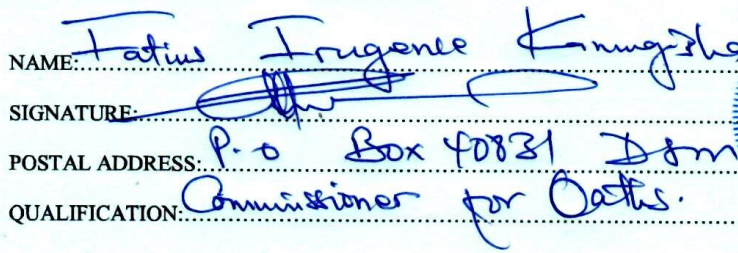 NAME: Fatius Irugence Kamugisha
SIGNATURE:
POSTAL ADDRESS: P.O Box 40831 Dsm
QUALIFICATION: Commissioner for Oaths.